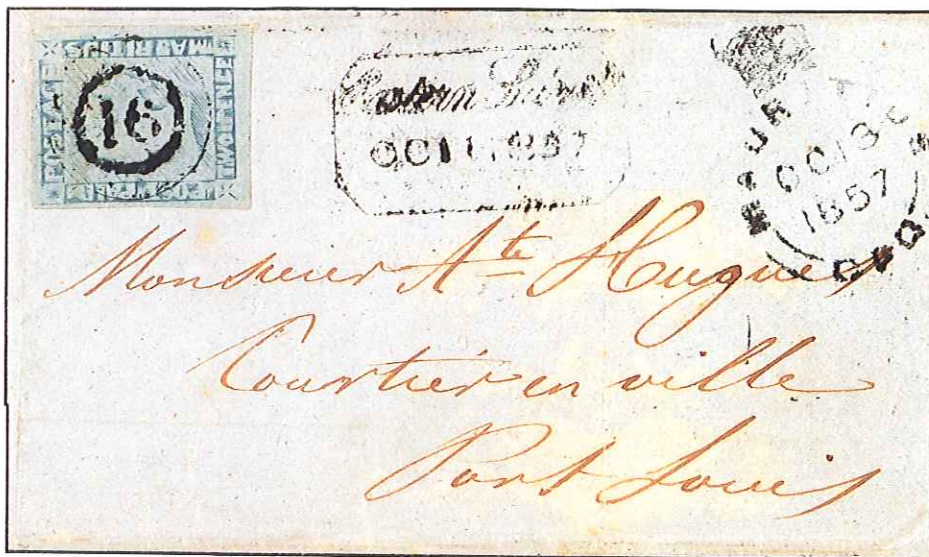 POSTAGE
MAURITIUS
16
OC 13
1857
Monsieur Ate Hugues
Courtier en ville
Port Louis